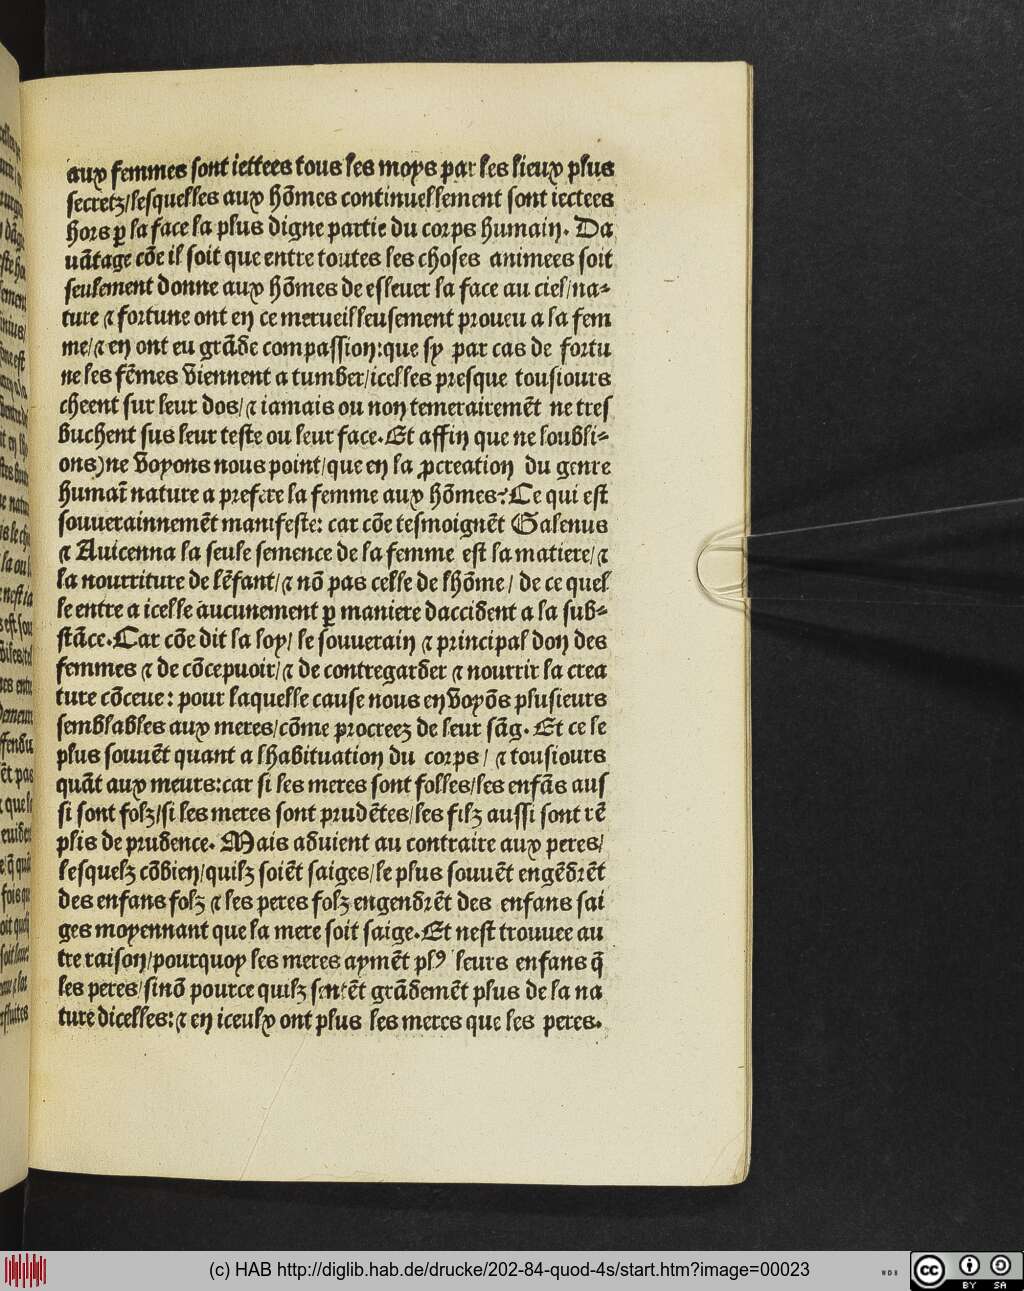 aux femmes sont iettees tous les moys par les lieux plus
secretz/lesquelles aux hõmes continuellement sont iectees
hors ꝑ la face la plus digne partie du corps humain. Da
uãtage cõe il soit que entre toutes les choses animees soit
seulement donne aux hõmes de esleuer la face au ciel/na-
ture ⁊ fortune ont en ce merueilleusement proueu a la fem
me/⁊ en ont eu grãde compassion:que sy par cas de fortu
ne les fẽmes viennent a tumber/icelles presque tousiours
cheent sur leur dos/⁊ iamais ou non temerairemẽt ne tres
buchent sus leur teste ou leur face. Et affin que ne loubli-
ons)ne voyons nous point/que en la ꝓcreation du genre
humaĩ nature a prefere la femme aux hõmes? Ce qui est
souuerainnemẽt manifeste: car cõe tesmoignẽt Galenus
⁊ Auicenna la seule semence de la femme est la matiere/⁊
la nourriture de lẽfant/⁊ nõ pas celle de lhõme/ de ce quel
le entre a icelle aucunement ꝑ maniere daccident a la sub-
stãce. Car cõe dit la loy/ le souuerain ⁊ principal don des
femmes ⁊ de cõcepuoir/⁊ de contregarder ⁊ nourrir la crea
ture cõceue: pour laquelle cause nous en voyõs plusieurs
semblables aux meres/cõme procreez de leur sãg. Et ce le
plus souuẽt quant a lhabituation du corps/ ⁊ tousiours
quãt aux meurs:car si les meres sont folles/les enfãs aus
si sont folz/si les meres sont prudẽtes/les filz aussi sont rẽ
plis de prudence. Mais aduient au contraire aux peres/
lesquelz cõbien/quilz soiẽt saiges/le plus souuẽt engẽdrẽt
des enfans folz ⁊ les peres folz engendrẽt des enfans sai
ges moyennant que la mere soit saige. Et nest trouuee au
tre raison/pourquoy les meres aymẽt plꝰ leurs enfans q̃
les peres/sinõ pource quilz sentẽt grãdemẽt plus de la na
ture dicelles:⁊ en iceulx ont plus les meres que les peres.
(c) HAB http://diglib.hab.de/drucke/202-84-quod-4s/start.htm?image=00023
cc BY SA